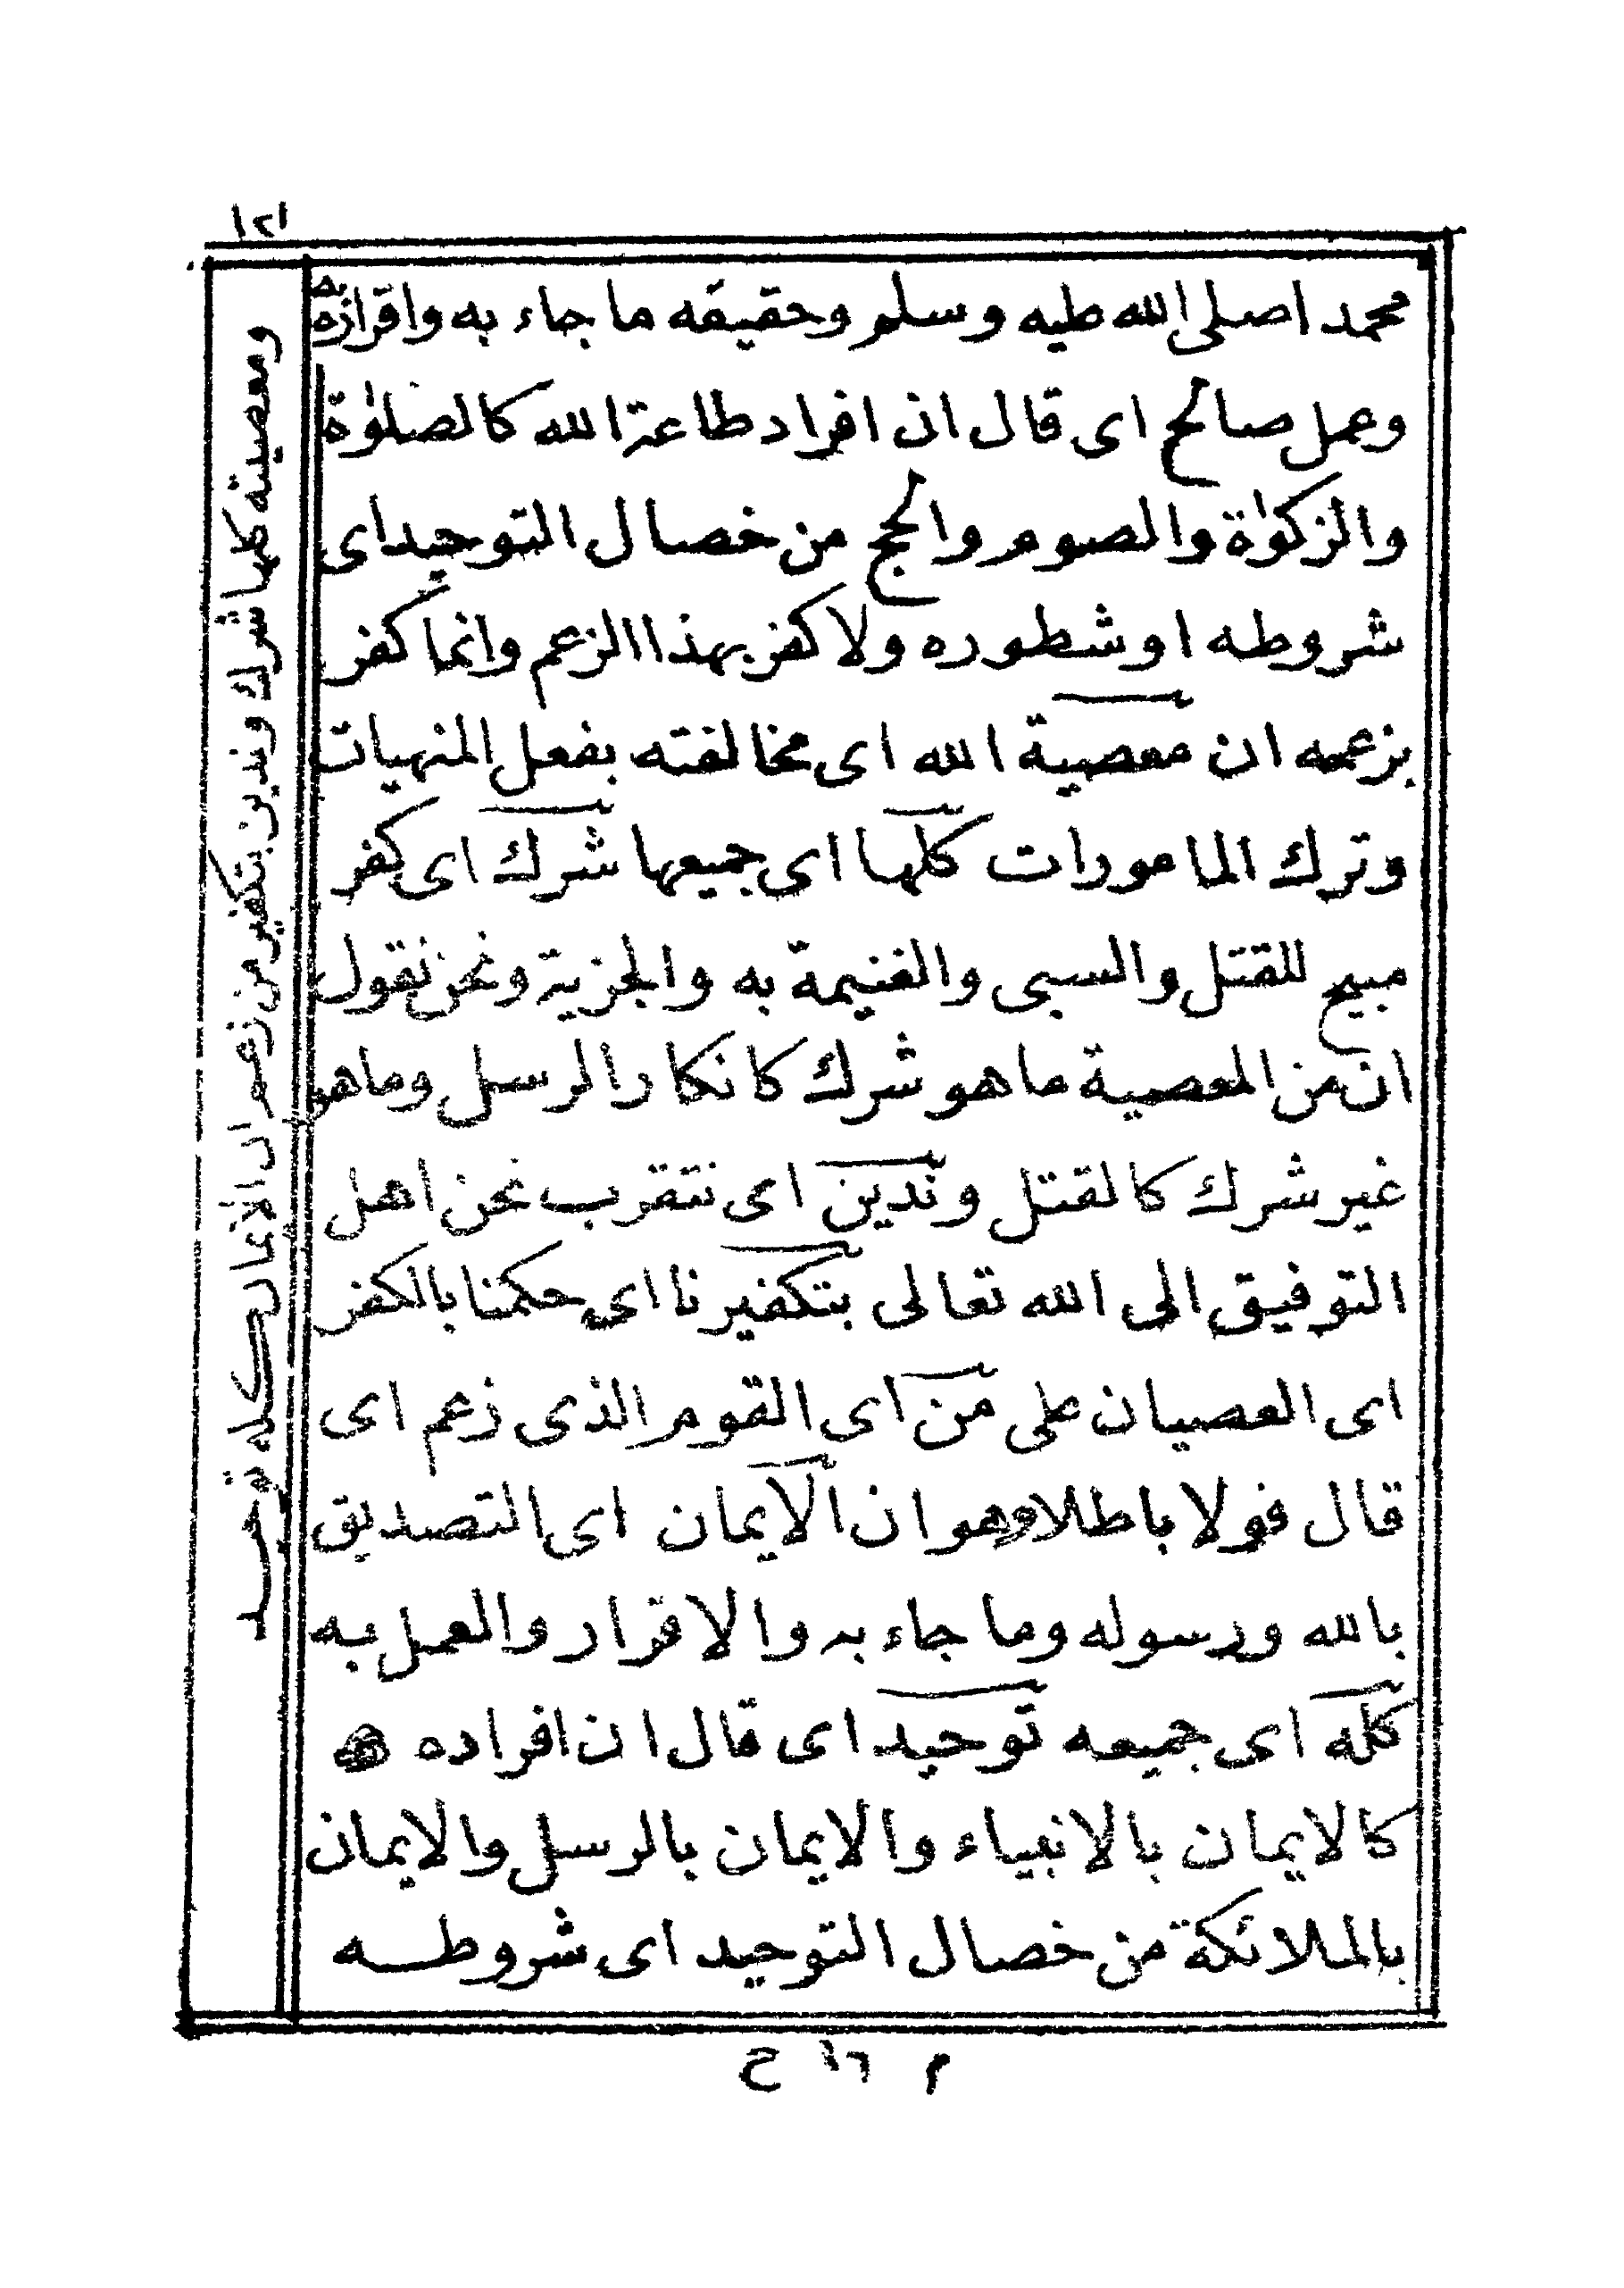 ١٢١
محمدا صلى الله عليه وسلم وحقيقه ما جاء به واقراره به
وعمل صالح اى قال ان افراد طاعة الله كالصلوٰة
والزكوٰة والصوم والحج من خصال التوحيد اى
شروطه او شطوره ولا كفر بهذا الزعم وانما كفر
بزعمه ان معصية الله اى مخالفته بفعل المنهيات
وترك المامورات كلها اى جميعها شرك اى كفر
مبيح للقتل والسبى والغنيمة به والجزية ونحن نقول
ان من المعصية ما هو شرك كانكار الرسل وما هو
غير شرك كالقتل وندين اى نتقرب نحن اهل
التوفيق الى الله تعالى بتكفيرنا اى حكمنا بالكفر
اى العصيان على من اى القوم الذى زعم اى
قال قولا باطلا وهو ان الايمان اى التصديق
بالله ورسوله وما جاء به والاقرار والعمل به
كله اى جميعه توحيد اى قال ان افراده
كالايمان بالانبياء والايمان بالرسل والايمان
بالملائكة من خصال التوحيد اى شروطه
ومعصيته كلها شرك وندين بتكفير من زعم ان الايمان كله توحيد
م ١٦ ح